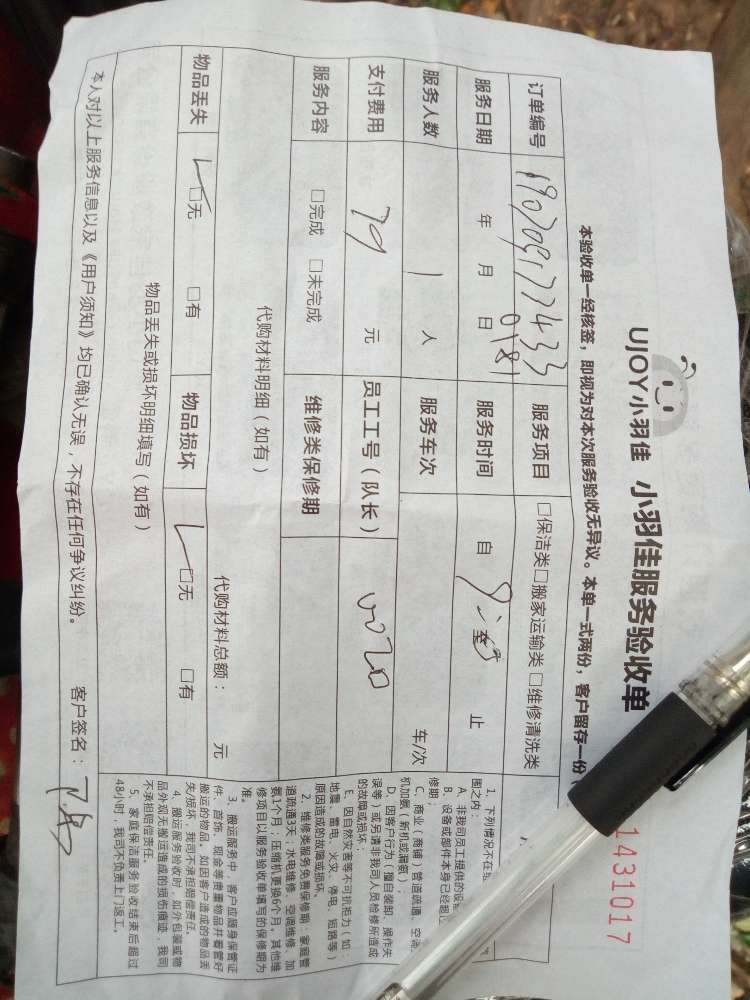 UJOY小羽佳 小羽佳服务验收单
1431017
本验收单一经核签，即视为对本次服务验收无异议。本单一式两份，客户留存一份
订单编号 服务项目 □保洁类□搬家运输类□维修清洗类
服务日期 年 月 日 服务时间 自 止
服务人数 1 人 服务车次 车/次
支付费用 79 元 员工工号（队长）
服务内容 □完成 □未完成 维修类保修期
代购材料明细（如有） 代购材料总额： 元
物品丢失 □无 □有 物品损坏 □无 □有
物品丢失或损坏明细填写（如有）
本人对以上服务信息以及《用户须知》均已确认无误，不存在任何争议纠纷。 客户签名：
1、下列情况不在
围之内
A、非我司员工提供的设
B、设备或部件本身已经超
修期；
C、商业（商铺）管道疏通、空
机加氨（新机或漏氨）；
D、因客户行为（擅自装卸、操作失
误等）或另请非我司人员检修所造成
的故障或损坏；
E、因自然灾害等不可抗拒力（如：
地震、雷电、火灾、停电、短路等）
原因造成的故障或损坏。
2、维修类服务免费保修期：家庭管
道疏通3天；水电维修、空调维修、加
氨1个月；压缩机更换6个月，其他维
修项目以服务验收单填写的保修期为
准。
3、搬运服务中，客户应随身保管证
件、首饰、现金等贵重物品并看管好
搬运的物品，如因客户造成的物品丢
失/损坏，我司不承担赔偿责任。
4、搬运服务验收时，如外包装或物
品外观无搬运造成的损伤痕迹，我司
不承担赔偿责任。
5、家庭保洁服务验收结束后超过
48小时，我司不负责上门返工。